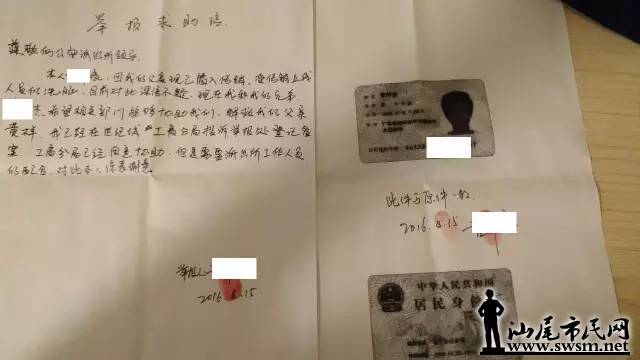 举报求助信
尊敬的公安派出所领导:
本人 因我的父亲现已陷入传销,受传销上线
人员的洗脑,目前对此深信不疑,现在我和我的兄弟,
希望相关部门能够协助我们,解救我们父亲
我已经在世纪城工商分局投诉举报处登记备
案,工商分局已经同意协助,但是需要派出所工作人员
的配合,对此本人深表谢意
举报人
2016.8.15
此件与原件一致
2016.8.15
中华人民共和国
居民身份
汕尾市民网
www.swsm.net